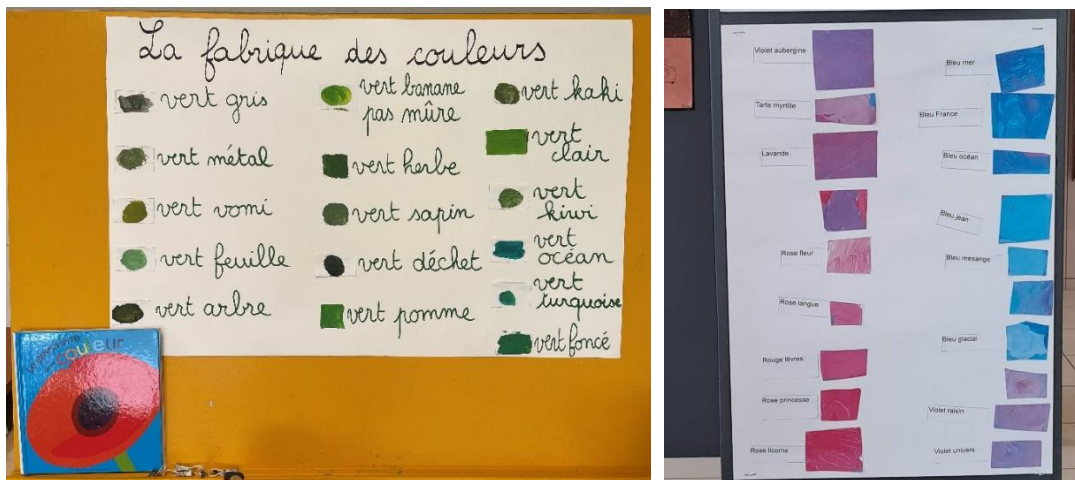 La fabrique des couleurs
vert gris
vert métal
vert vomi
vert feuille
vert arbre
vert banane
pas mûre
vert herbe
vert sapin
vert déchet
vert pomme
vert kaki
vert
clair
vert
kiwi
vert
océan
vert
turquoise
vert foncé
couleur
Violet aubergine
Tarte myrtille
Lavande
Rose fleur
Rose langue
Rouge lèvres
Rose princesse
Rose licorne
Bleu mer
Bleu France
Bleu océan
Bleu jean
Bleu mésange
Bleu glacial
Violet raisin
Violet univers